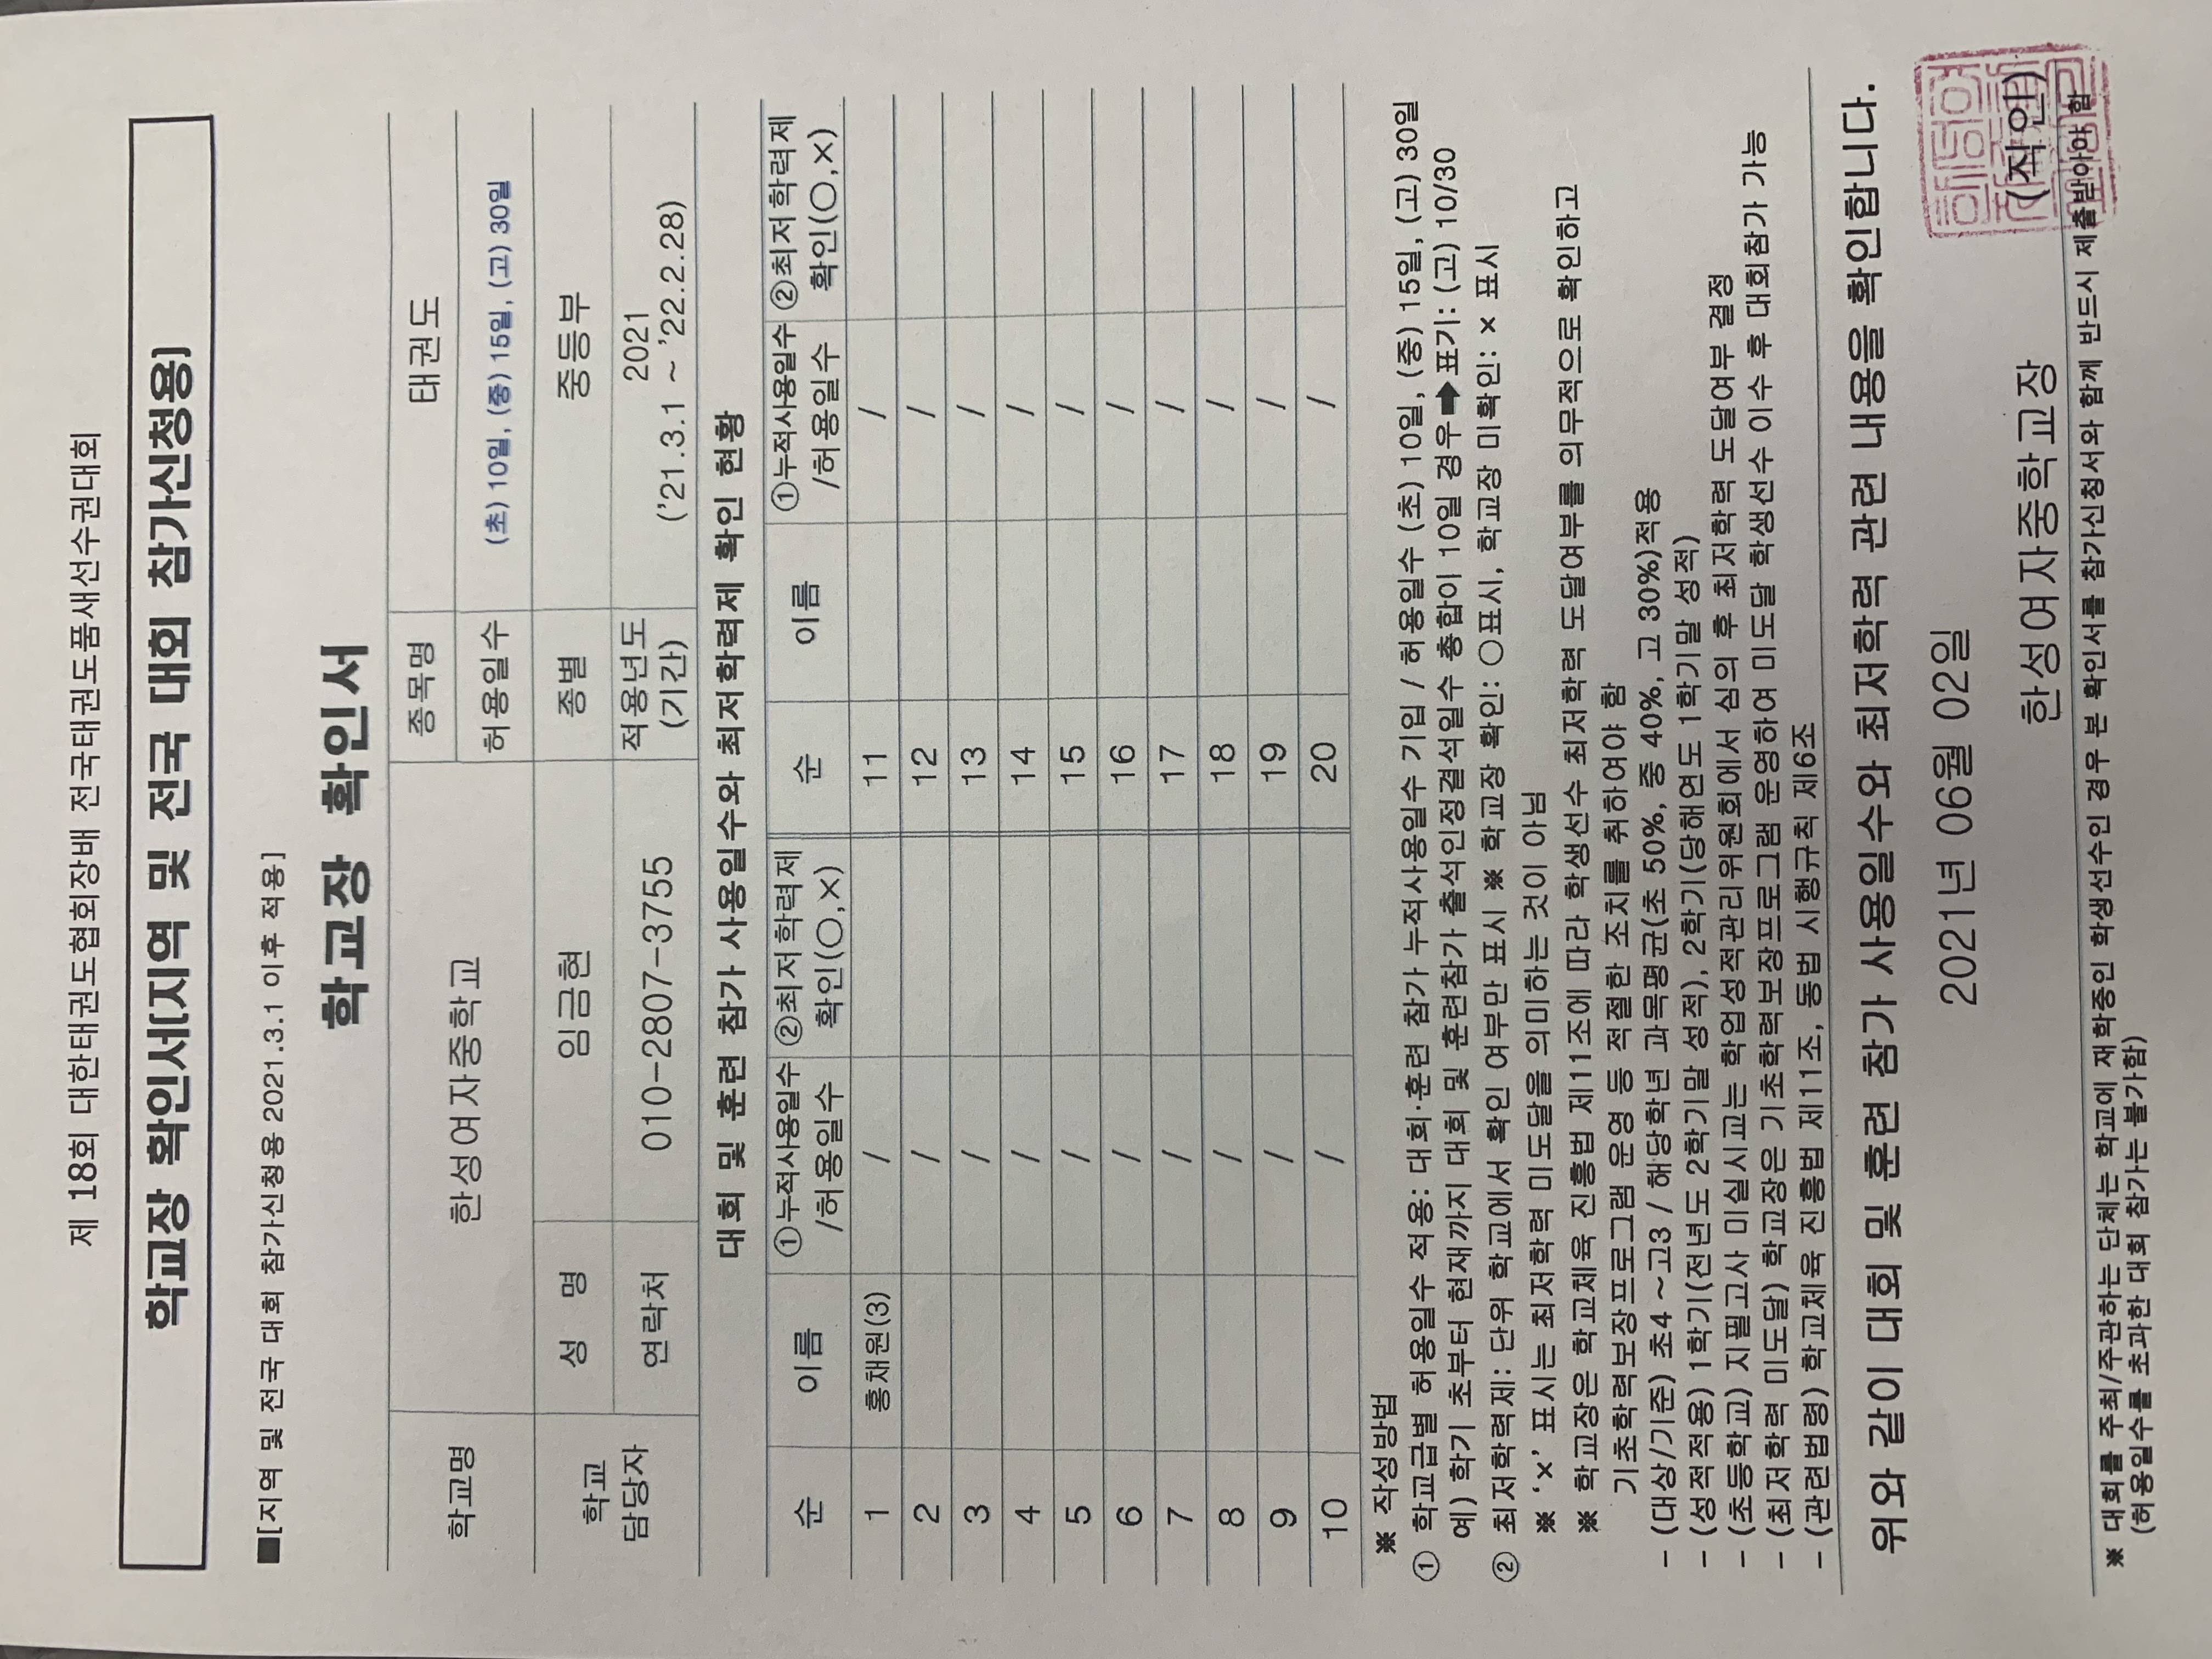 제 18회 대한태권도협회장배 전국태권도품새선수권대회
학교장 확인서[지역 및 전국 대회 참가신청용]
■[지역 및 전국 대회 참가신청용 2021.3.1 이후 적용]
학교장 확인서
학교명 한성여자중학교 종목명 태권도
허용일수 (초) 10일, (중) 15일, (고) 30일
학교 담당자 성 명 임금현 종별 중등부
연락처 010-2807-3755 적용년도 (기간) 2021 ('21.3.1 ~ '22.2.28)
대회 및 훈련 참가 사용일수와 최저학력제 확인 현황
순 이름 ①누적사용일수 /허용일수 ②최저학력제 확인(○,×) 순 이름 ①누적사용일수 /허용일수 ②최저학력제 확인(○,×)
1 홍채원(3) / 11 /
2 / 12 /
3 / 13 /
4 / 14 /
5 / 15 /
6 / 16 /
7 / 17 /
8 / 18 /
9 / 19 /
10 / 20 /
※ 작성방법
① 학교급별 허용일수 적용: 대회·훈련 참가 누적사용일수 기입 / 허용일수 (초) 10일, (중) 15일, (고) 30일
예) 학기 초부터 현재까지 대회 및 훈련참가 출석인정결석일수 총합이 10일 경우 ➡ 표기: (고) 10/30
② 최저학력제: 단위 학교에서 확인 여부만 표시 ※ 학교장 확인: ○표시, 학교장 미확인: × 표시
※ '×' 표시는 최저학력 미도달을 의미하는 것이 아님
※ 학교장은 학교체육 진흥법 제11조에 따라 학생선수 최저학력 도달여부를 의무적으로 확인하고
기초학력보장프로그램 운영 등 적절한 조치를 취하여야 함
- (대상/기준) 초4 ~ 고3 / 해당학년 과목평균(초 50%, 중 40%, 고 30%)적용
- (성적적용) 1학기(전년도 2학기말 성적), 2학기(당해연도 1학기말 성적)
- (초등학교) 지필고사 미실시교는 학업성적관리위원회에서 심의 후 최저학력 도달여부 결정
- (최저학력 미도달) 학교장은 기초학력보장프로그램 운영하여 미도달 학생선수 이수 후 대회참가 가능
- (관련법령) 학교체육 진흥법 제11조, 동법 시행규칙 제6조
위와 같이 대회 및 훈련 참가 사용일수와 최저학력 관련 내용을 확인합니다.
2021년 06월 02일
한성여자중학교장 (직인)
※ 대회를 주최/주관하는 단체는 학교에 재학중인 학생선수인 경우 본 확인서를 참가신청서와 함께 반드시 제출받아야 함
(허용일수를 초과한 대회 참가는 불가함)